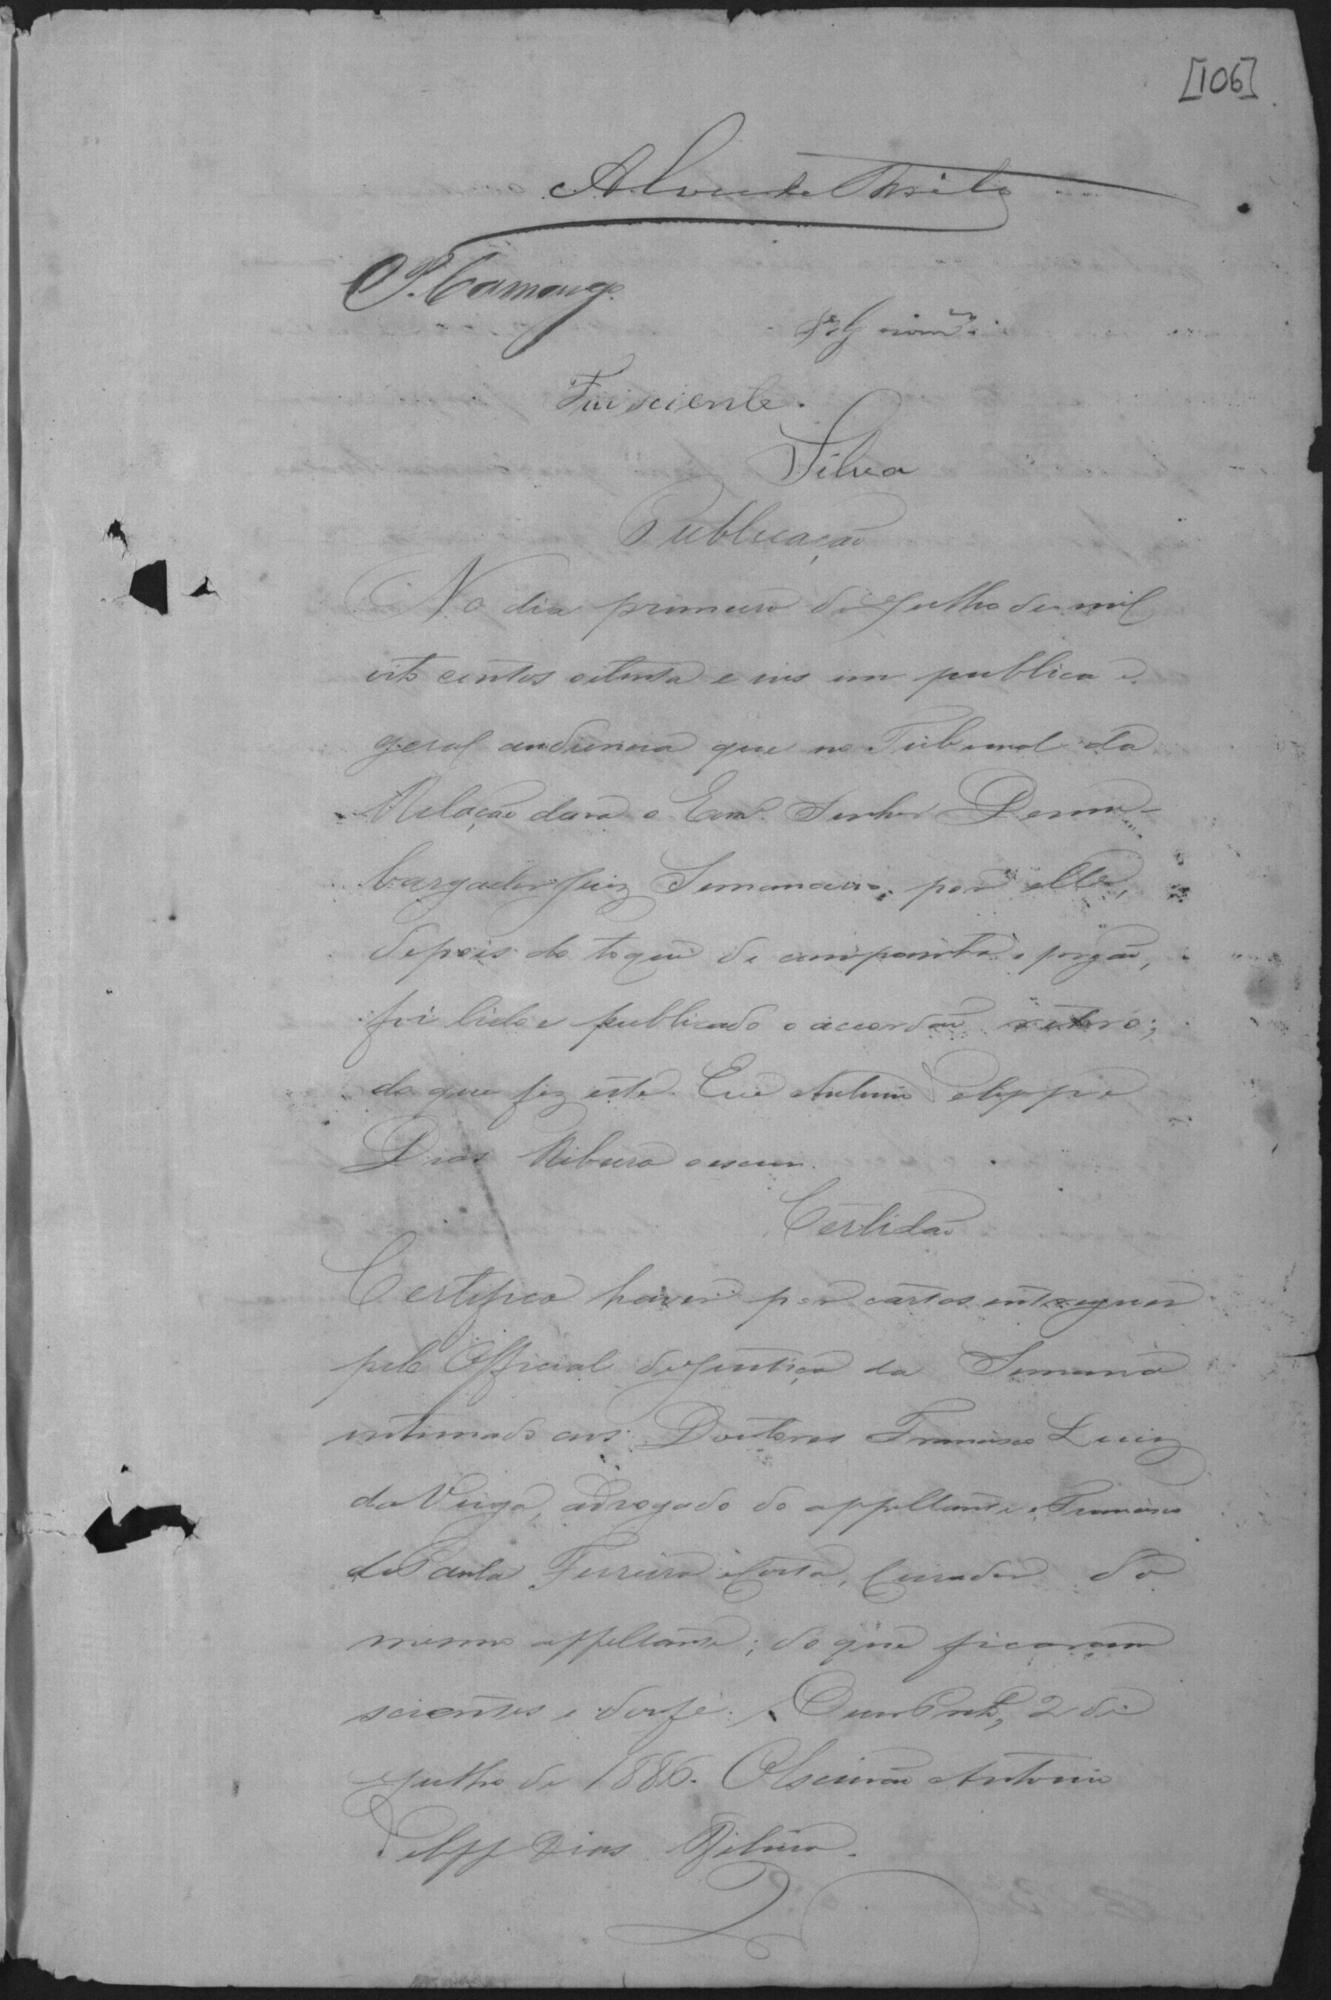 [106]
Alves de Brito
P. Camargo
Fui sciente.
Silva
Publicação
No dia primeiro de Julho de mil
oito centos oitenta e seis em publica e
geral audiencia que no Tribunal da
Relação dava o Exmo. Senhor Desem-
bargador Juiz Semanario, por elle,
depois do toque de campainha e pregão,
foi lido e publicado o accordão retro;
do que fiz este. Eu Antonio Felippe
Dias Ribeiro o escrevi.
Certidão
Certifico haver por cartas entregues
pelo Official de Justiça da Semana
intimado aos Doutores Francisco Luiz
da Veiga, advogado do appellante e Francisco
de Paula Ferreira e Costa, Curador do
mesmo appellante; do que ficaram
scientes e dou fé. Ouro Preto, 2 de
Julho de 1886. O Escrivão Antonio
Felippe Dias Ribeiro.